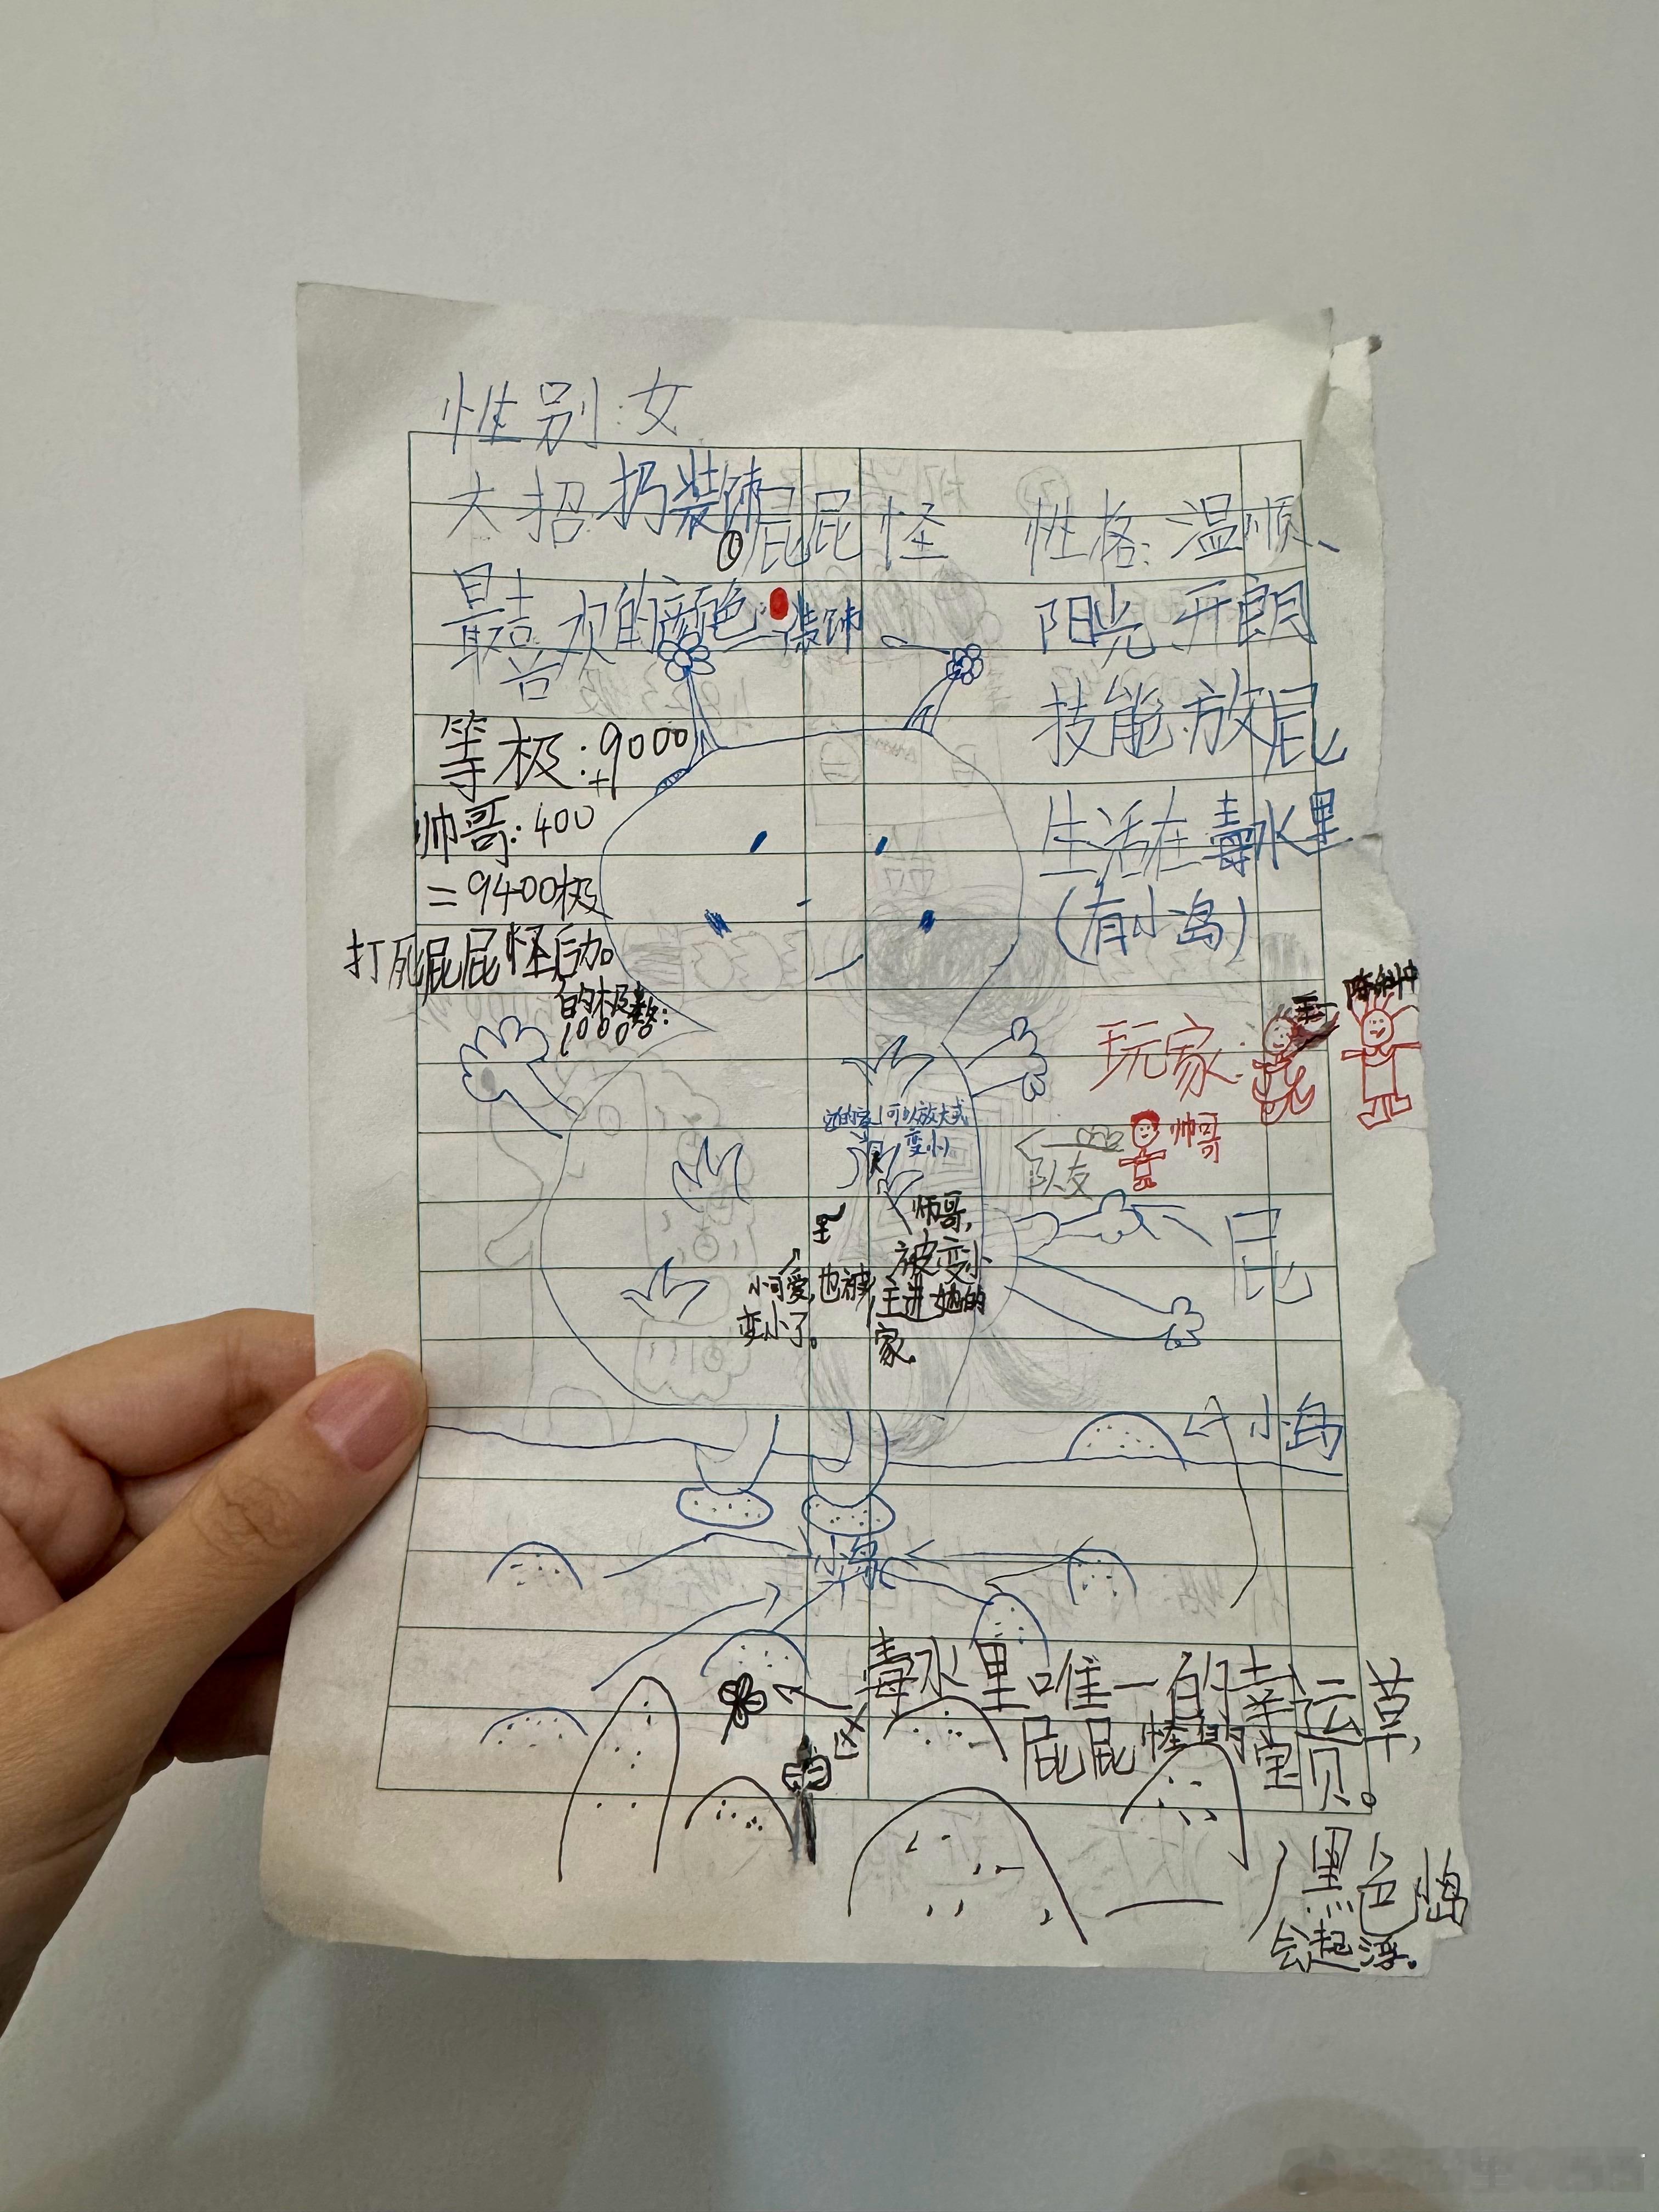 性别:女
大招:扔装饰
①屁屁怪
性格:温顺、
阳光开朗
最喜欢的颜色:
装饰
技能:放屁
等极:9000
+
帅哥:400
=9400极
生活在毒水里
(有小岛)
打死屁屁怪后加
的极数:
10000
玩家:
帅哥
队友
她的家,可以放大或
变小
帅哥,
被变小
住进她的
家
小可爱,也被
变小了。
屁
小岛
小岛
毒水里唯一的幸运草,
屁屁怪的宝贝。
黑色岛
会起浮。